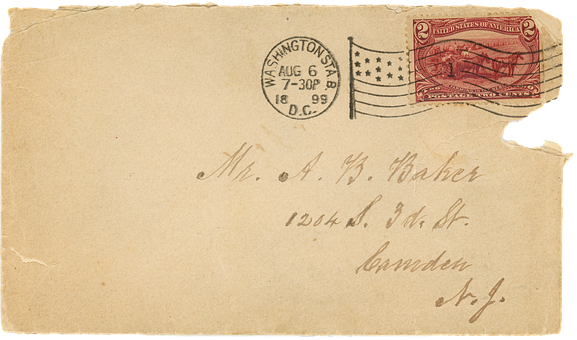 WASHINGTON STA. B.
AUG 6
7-30P
18 99
D.C.
2 UNITED STATES OF AMERICA 2
POSTAGE TWO CENTS
Mr. A. B. Baker
1204 S. 3d. St.
Camden
N. J.